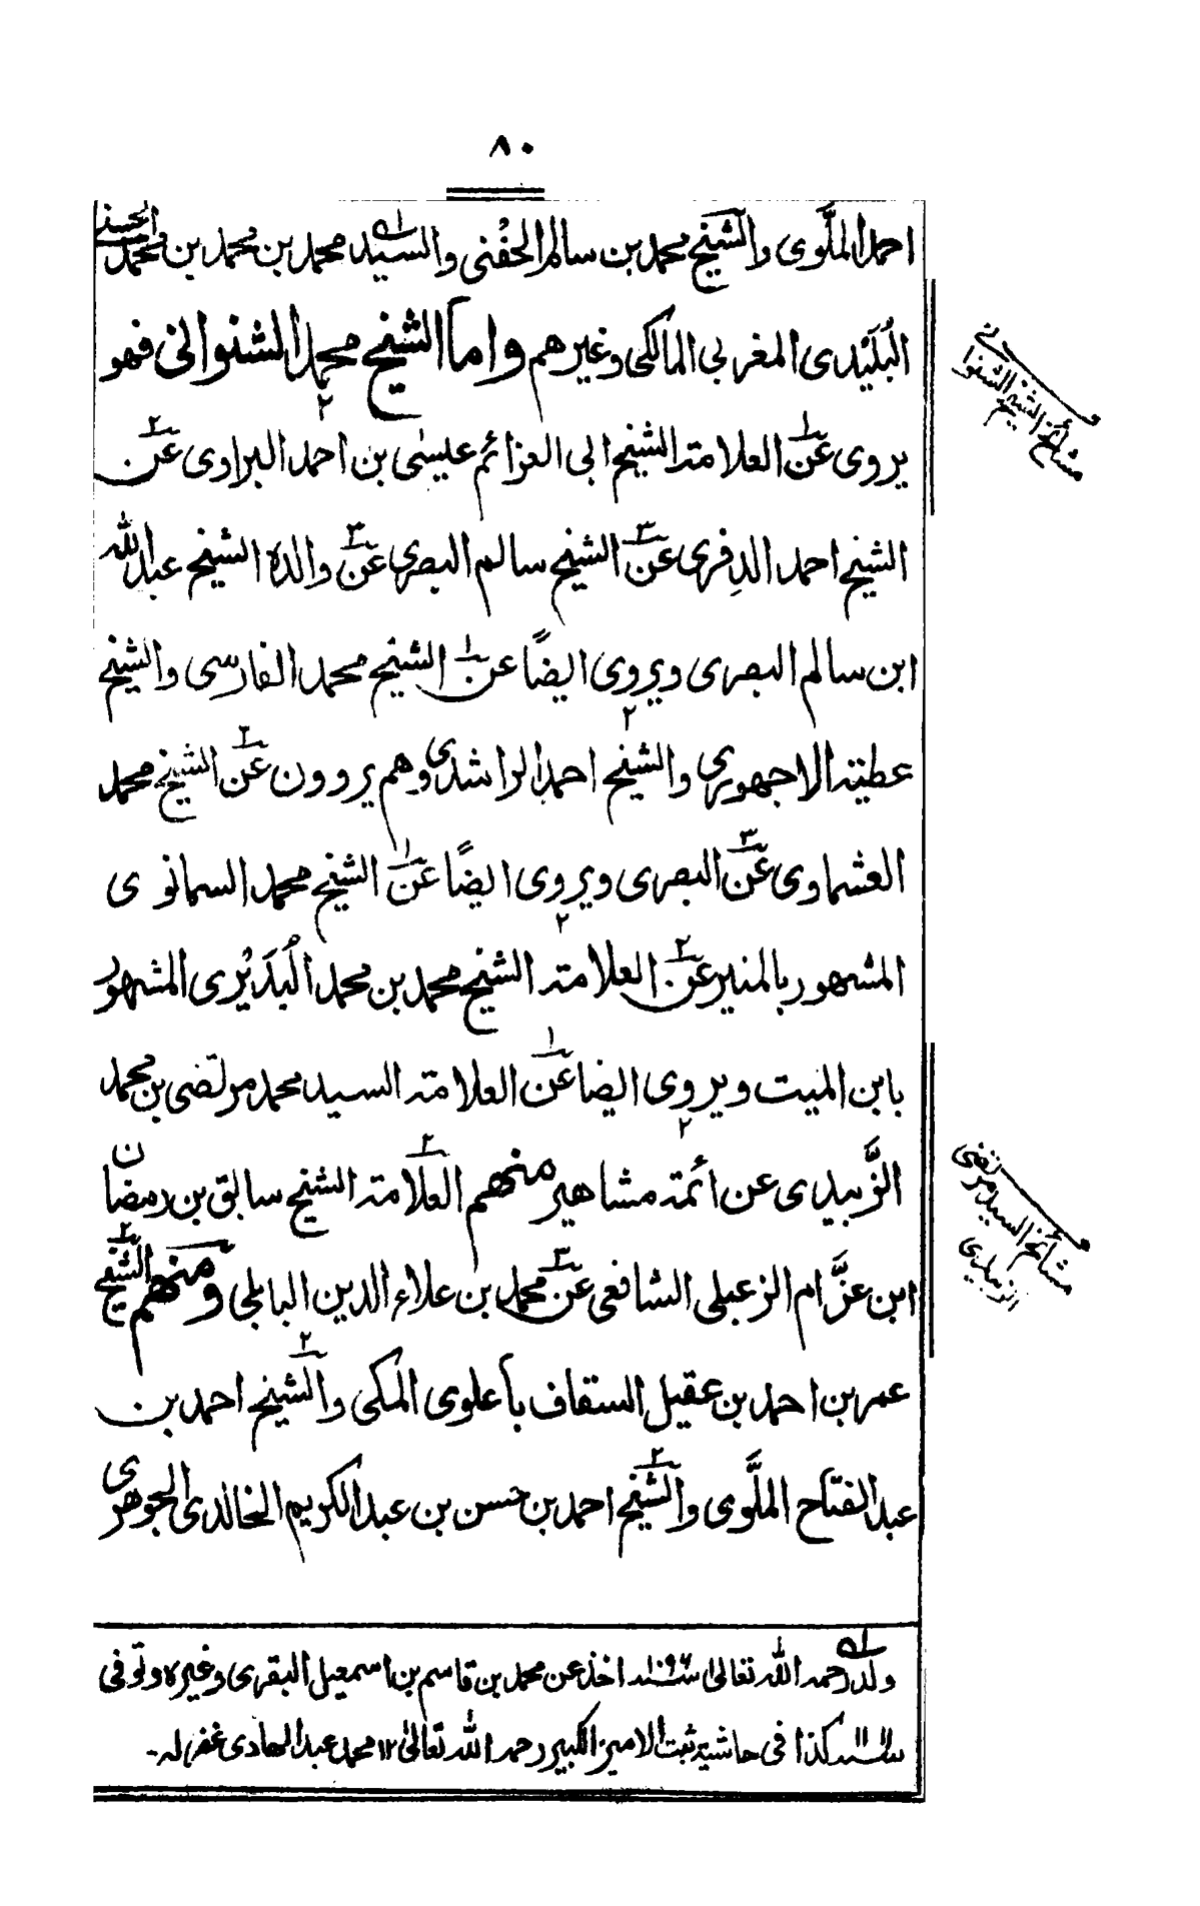 ٨٠
احمد الملَّوى والشيخ محمد بن سالم الحفْنى والسيد محمد بن محمد بن محمد الحسنى
البُلَيْدى المغربى المالكى وغيرهم واما الشيخ محمد الشنوانى فهو
يروى عن العلامة الشيخ ابى العزائم عيسٰى بن احمد البراوى عن
الشيخ احمد الدِفرى عن الشيخ سالم البصرى عن والده الشيخ عبد الله
ابن سالم البصرى ويروى ايضًا عن الشيخ محمد الفارسى والشيخ
عطية الاجهورى والشيخ احمد الراشدى وهم يروون عن الشيخ محمد
العشماوى عن البصرى ويروى ايضًا عن الشيخ محمد السمانوى
المشهور بالمنير عن العلامة الشيخ محمد بن محمد البُدَيْرى المشهور
بابن الميت ويروى ايضا عن العلامة السيد محمد مرتضى بن محمد
الزَّبيدى عن ائمة مشاهير منهم العلامة الشيخ سابق بن رمضان
ابن عزَّام الزعبلى الشافعى عن محمد بن علاء الدين البابلى ومنهم الشيخ
عمر بن احمد بن عقيل السقاف باعلوى المكى والشيخ احمد بن
عبد الفتاح الملَّوى والشيخ احمد بن حسن بن عبد الكريم الخالدى الجوهرى
مشائخ الشيخ الشنوانى
مشائخ السيد مرتضى
الزبيدى
ولد رحمه الله تعالى سنة ١٠٩٦ اخذ عن محمد بن قاسم بن اسمعيل البقرى وغيره وتوفى
كذا فى حاشية ثبت الامير الكبير رحمه الله تعالىٰ ١٢ محمد عبد الهادى غفر له-